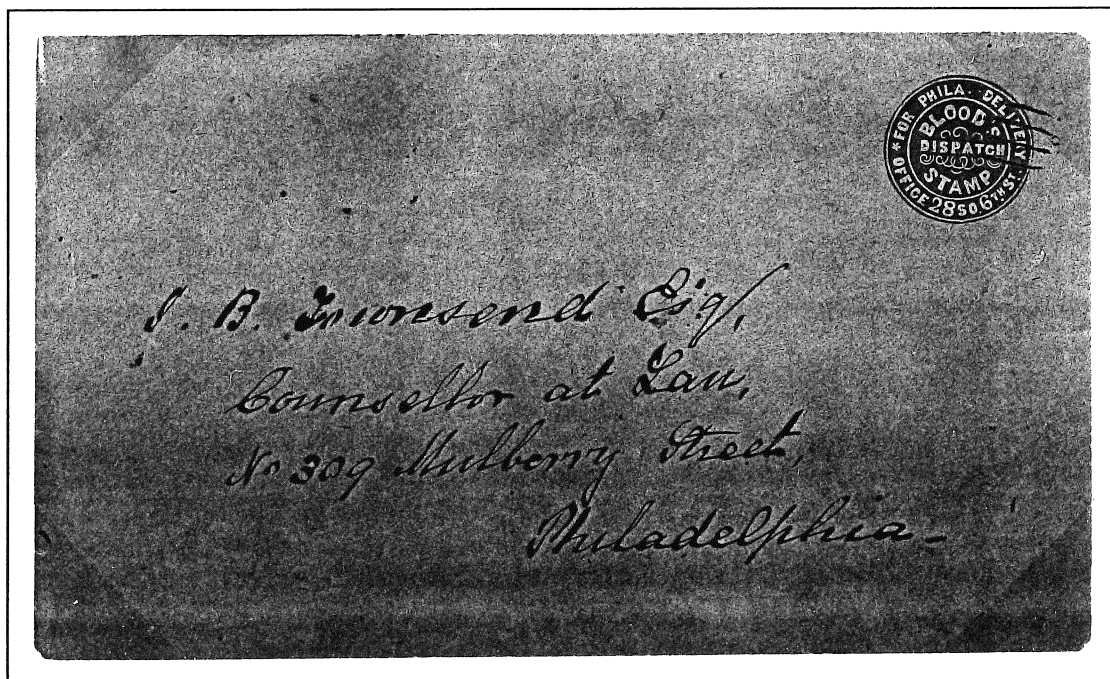 * FOR PHILA. DELIVERY
BLOOD'S
DISPATCH
STAMP
OFFICE 28 SO. 6TH ST.
J. B. Townsend Esq,
Counsellor at Law,
No 309 Mulberry Street,
Philadelphia-